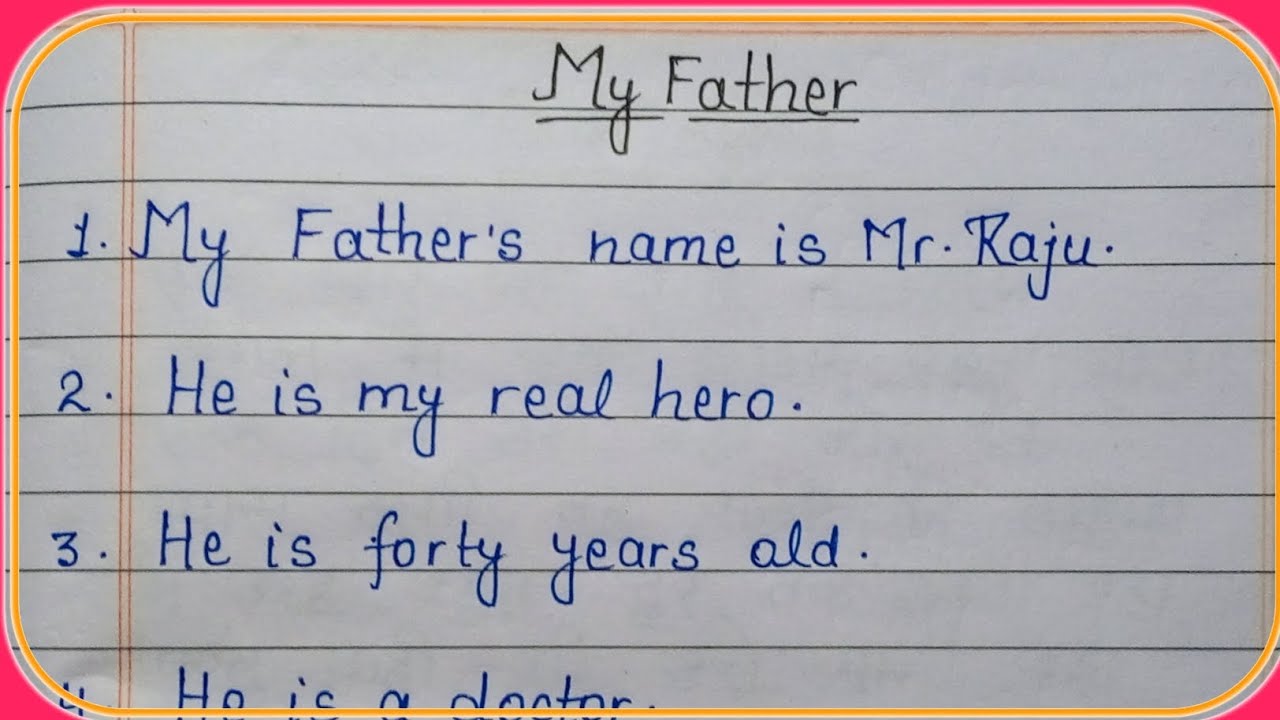 My Father
1. My Father's name is Mr. Raju.
2. He is my real hero.
3. He is forty years ald.
4. He is a doctor.